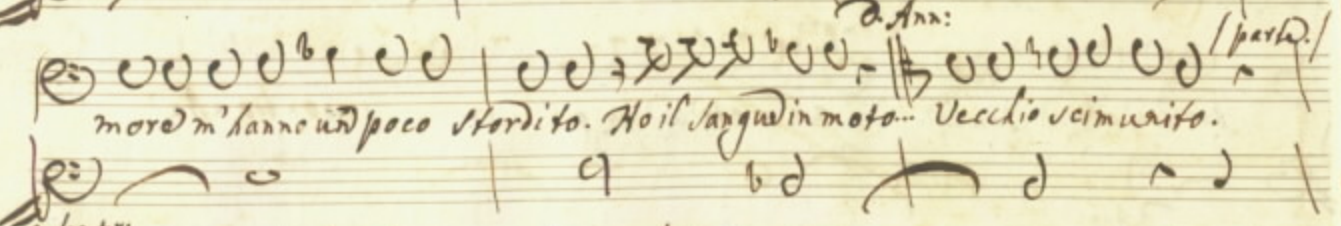 d. Ann:
/ parte. /
more m'hanno un poco stordito. Ho il sangue in moto... Vecchio scimunito.